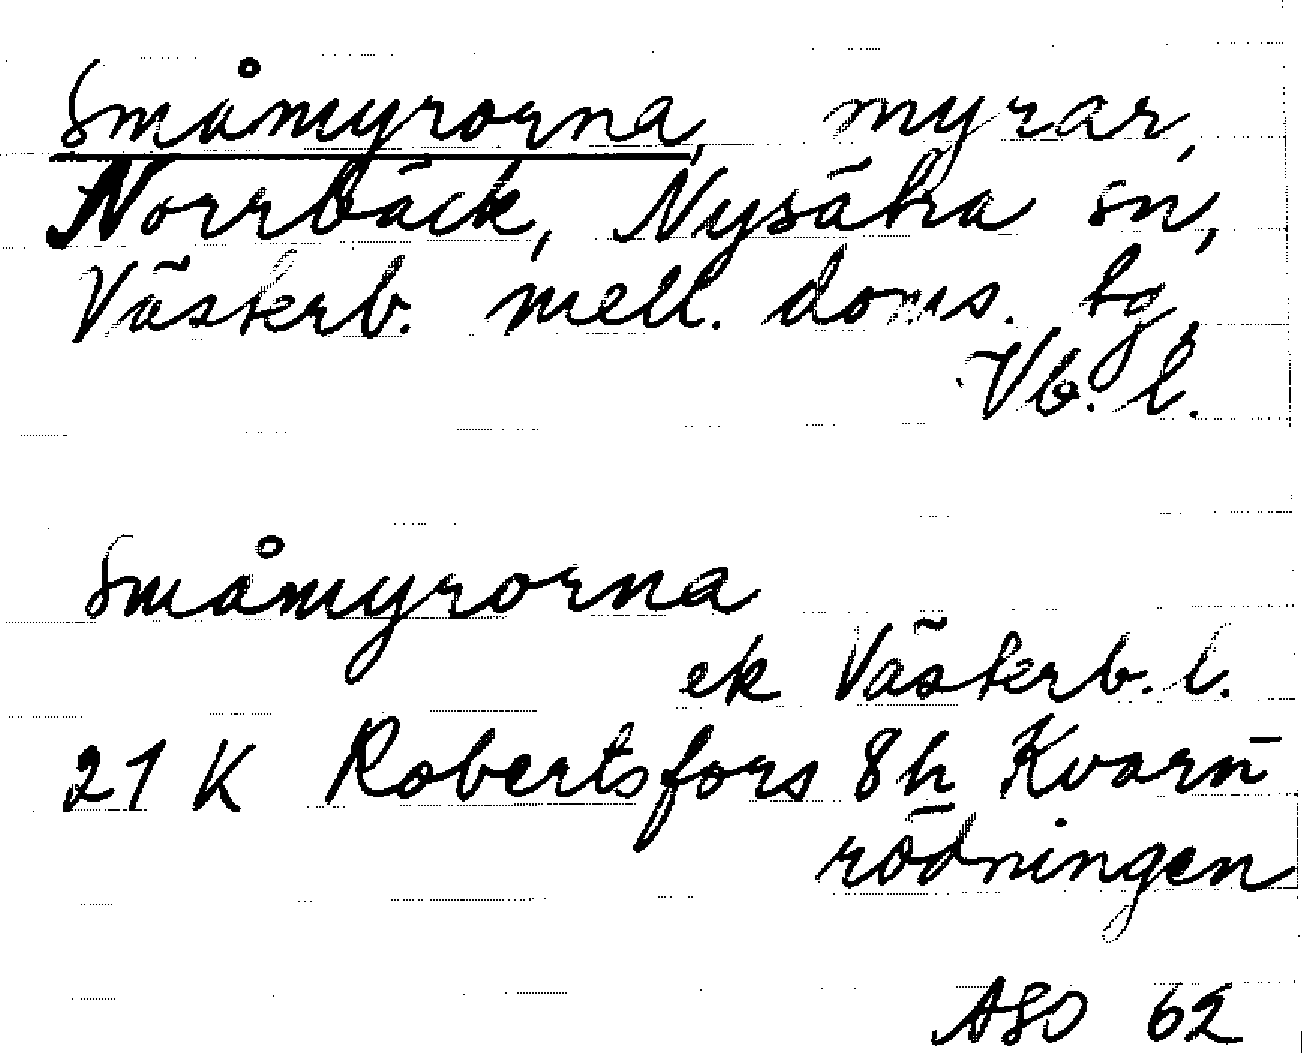 Småmyrorna, myrar,
Norrbäck, Nysätra sn,
Västerb. mell. doms. tg,
Vb. l.
Småmyrorna
ek Västerb. l.
21 K Robertsfors 8h Kvarn-
rödningen
ASO 62